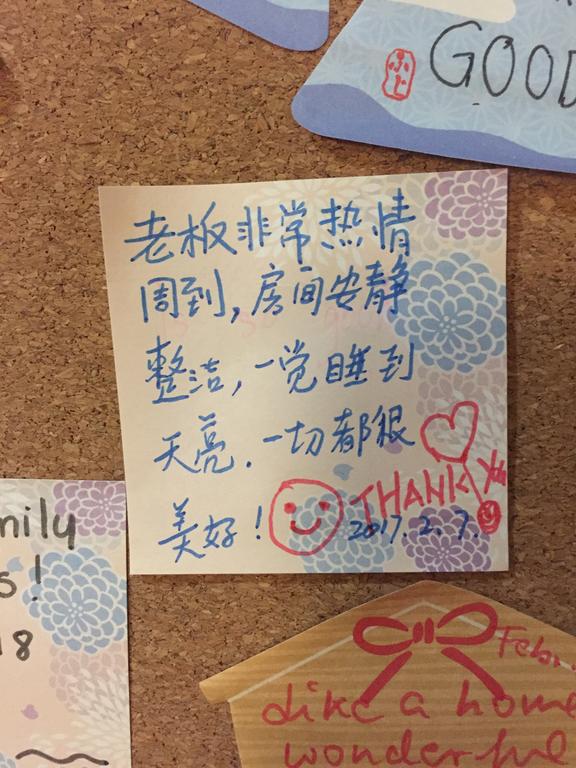 GOOD
老板非常热情
周到,房间安静
整洁,一觉睡到
天亮.一切都很
美好!
THANK You
2017.2.7.
mily
s!
18
Febr
Like a home
wonderful